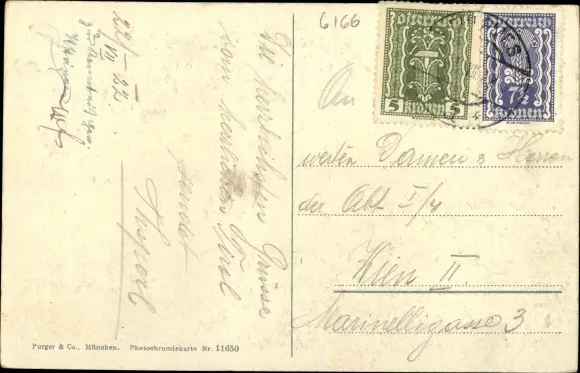 6166
österreich
5 5
kronen
österreich
7½
kronen
An
werten Damen & Herren
der Abt I/4
Wien II.
Marinelligasse 3
22/VII 22.
Die herzlichsten Grüsse
vom herrlichen Tirol
sendet
Purger & Co., München. Photochromiekarte Nr. 11650